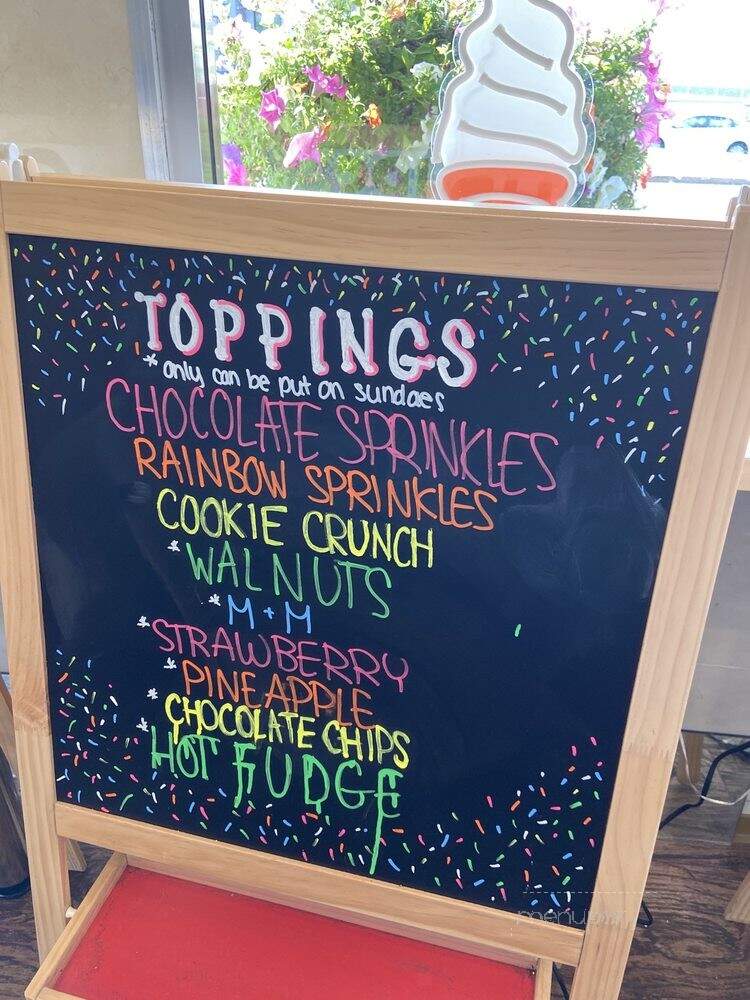 TOPPINGS
* only can be put on sundaes
CHOCOLATE SPRINKLES
RAINBOW SPRINKLES
COOKIE CRUNCH
* WALNUTS
* M+M
* STRAWBERRY
* PINEAPPLE
* CHOCOLATE CHIPS
* HOT FUDGE